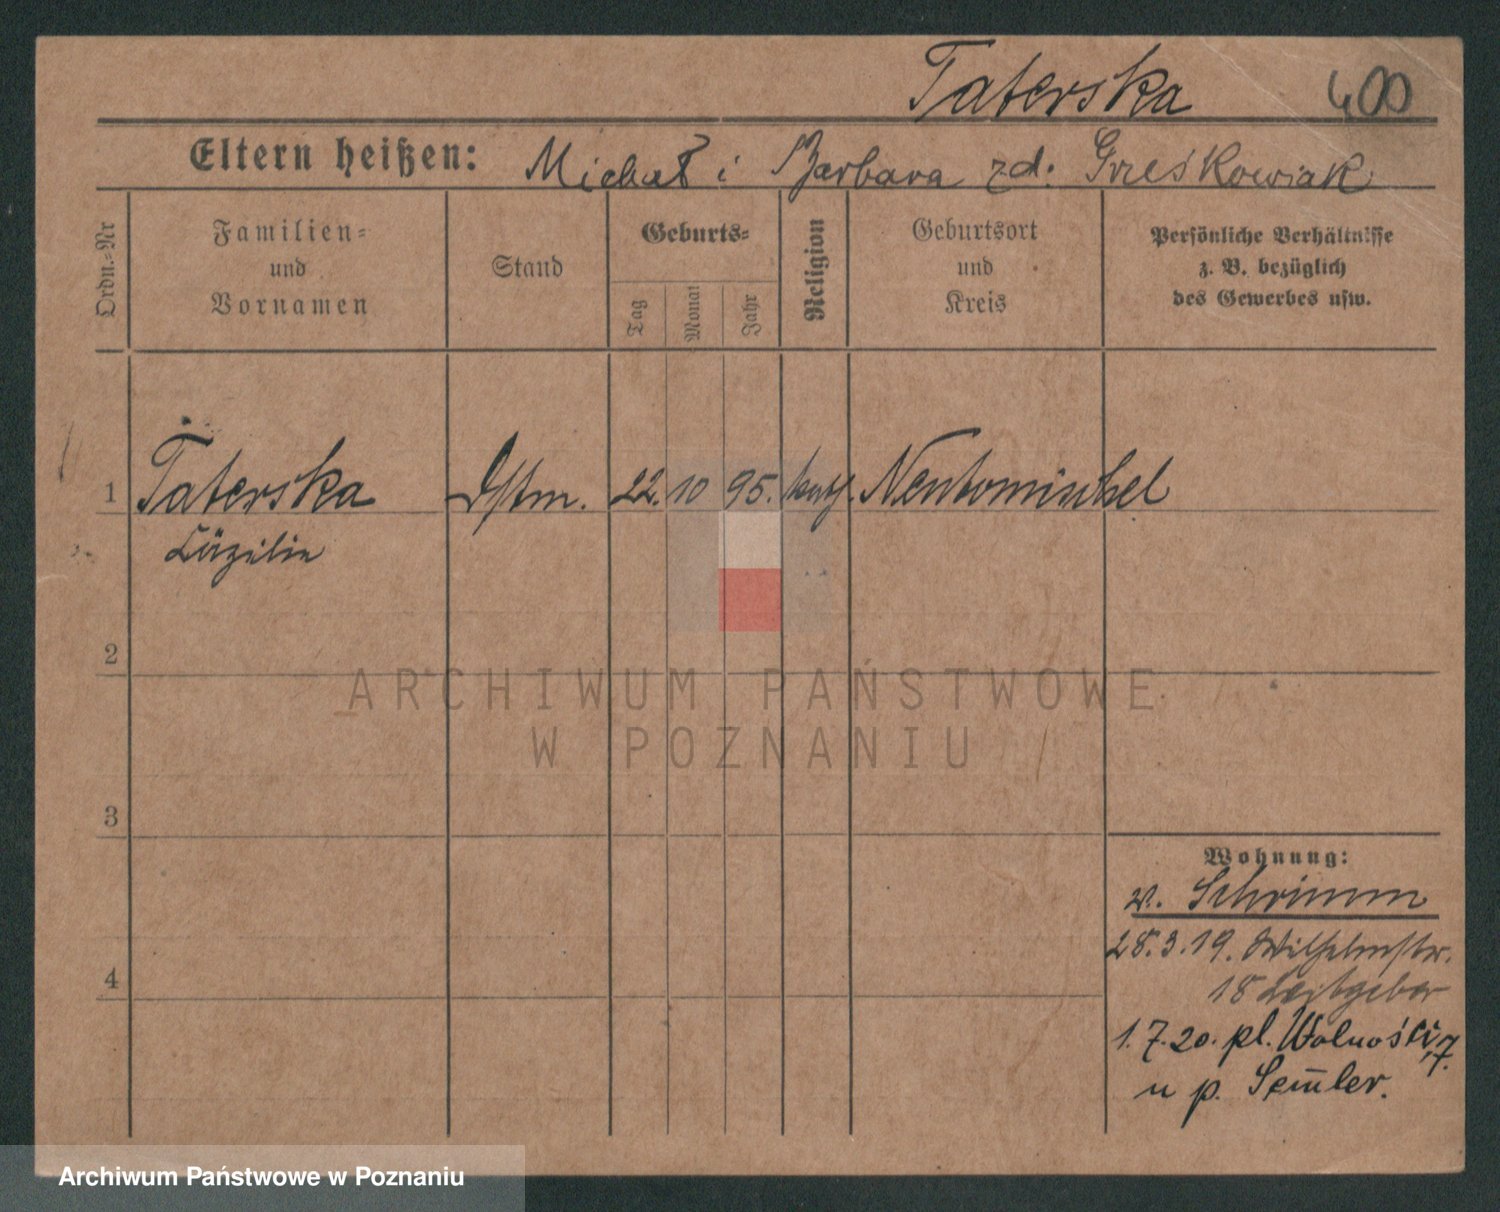 Taterska 400
Eltern heißen: Michał i Barbara zd. Grześkowiak
Ordn.=Nr
Familien=
und
Vornamen
Stand
Geburts=
Tag
Monat
Jahr
Religion
Geburtsort
und
Kreis
Persönliche Verhältnisse
z. B. bezüglich
des Gewerbes usw.
1 Taterska Dstm. 22. 10 95. kath. Neutomischel
Cäzilie
2
ARCHIWUM PAŃSTWOWE
W POZNANIU
3
Wohnung:
v. Schrimm
4
28.3.19. Wilhelmstr.
18 Leitgeber
1.7.20. pl. Wolności, 7.
u p. Sem̅ler.
Archiwum Państwowe w Poznaniu